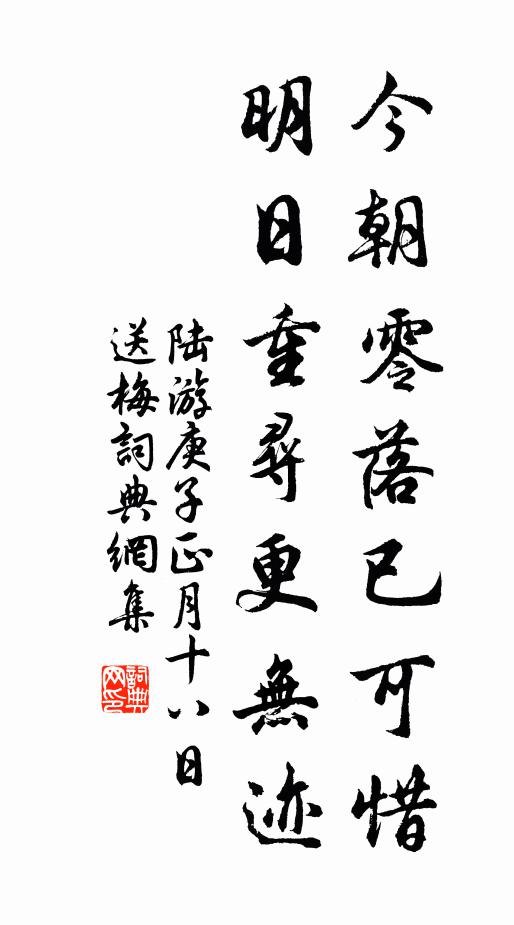 今朝零落已可惜
明日重尋更無迹
陆游庚子正月十八日
送梅詞典網集
詞典网印